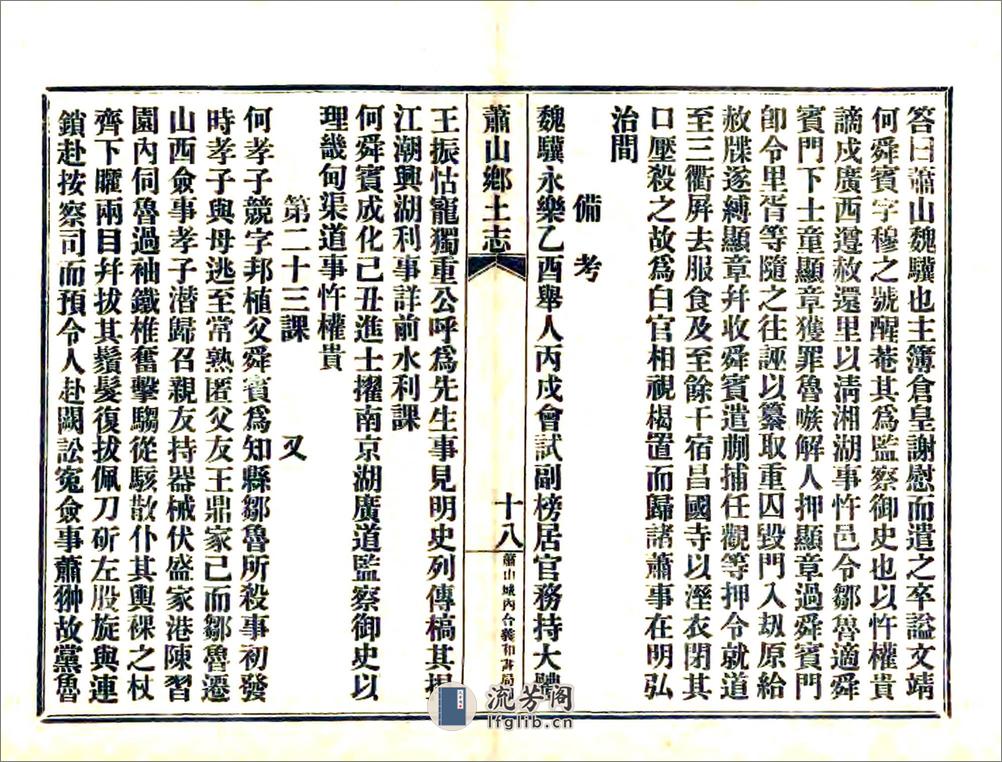 答曰蕭山魏驥也主簿倉皇謝慰而遣之卒謚文靖
何舜賓字穆之號醒菴其為監察御史也以忤權貴
謫戍廣西遵赦還里以清湘湖事忤邑令鄒魯適舜
賓門下士童顯章獲罪魯嗾解人押顯章過舜賓門
卽令里胥等隨之往誣以纂取重囚毀門入刼原給
赦牒遂縛顯章幷收舜賓遣蒯捕任觀等押令就道
至三衢屏去服食及至餘干宿昌國寺以溼衣閉其
口壓殺之故為白官相視楬置而歸諸蕭事在明弘
治間
備考
魏驥永樂乙酉舉人丙戍會試副榜居官務持大
蕭山鄉土志
十八
蕭山城內合義和書局
王振怙寵獨重公呼為先生事見明史列傳槁其
江潮興湖利事詳前水利課
何舜賓成化己丑進士擢南京湖廣道監察御史以
理畿甸渠道事忤權貴
第二十三課 又
何孝子競字邦植父舜賓為知縣鄒魯所殺事初發
時孝子與母逃至常熟匿父友王鼎家已而鄒魯遷
山西僉事孝子潛歸召親友持器械伏盛家港陳習
園內伺魯過袖鐵椎奮擊騶從駭散仆其輿裸之杖
齊下矐兩目幷拔其鬚髮復拔佩刀斫左股旋與連
鎖赴按察司而預令人赴闕訟寃僉事蕭翀故黨魯
流芳阁
lfglib.cn